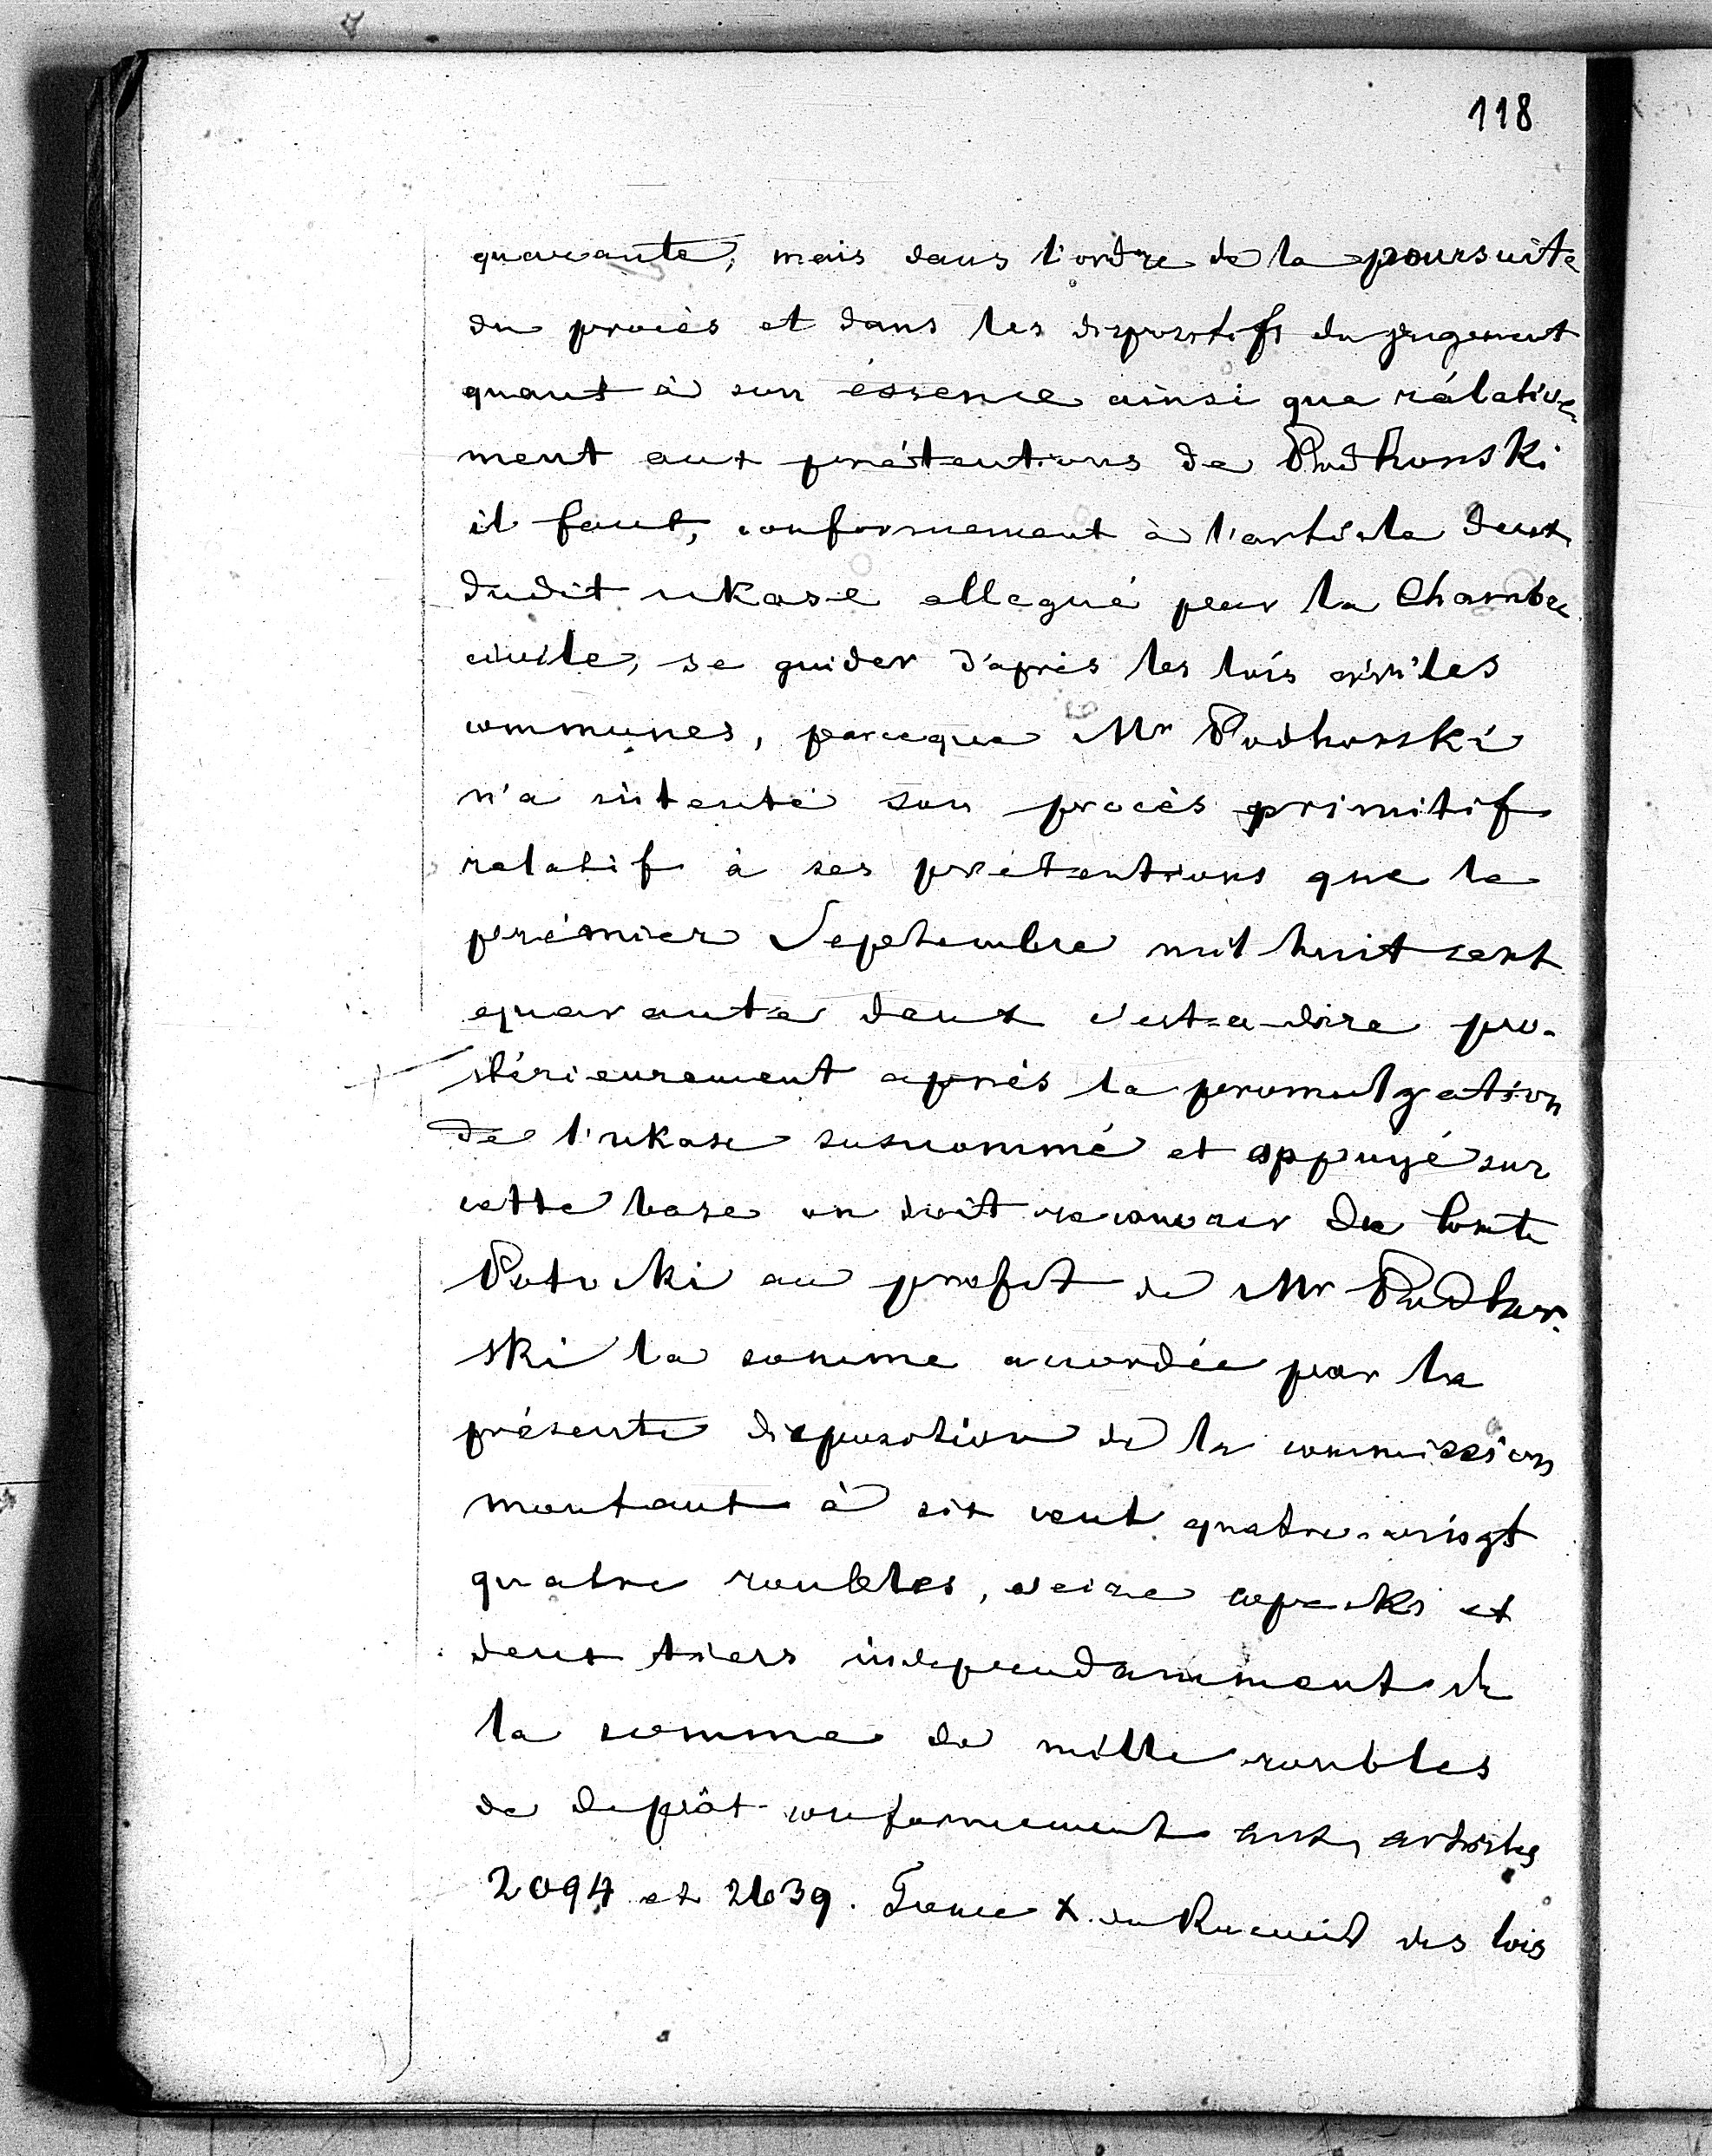 118
quarante, mais dans l'ordre de la poursuite
du procès et dans les dispositifs du jugement
quant à son éssence ainsi que rélative
ment aux prétentions de Podhorski
il faut, conformement à l'article deux
dudit ukase allegué par la Chambre
civile, se guider d'après les lois civiles
communes, parceque Mr Podhorski
n'a intenté son procès primitif
relatif à ses prétentions que le
prémier Septembre mil huit cent
quarante deux c'est-a-dire po-
stérieurement après la promulgation
de l'ukase susnommé et appuyé sur
cette base on doit recouvrer du Comte
Potocki au profit de Mr Podhor-
ski la somme accordée par la
présente disposition de la commission
montant à six cent quatre-vingt
quatre roubles, seize copeks et
deux tiers independamment de
la somme de mille roubles
de depôt conformement aux articles
2094 et 2639. Tome X. du Recueil des lois